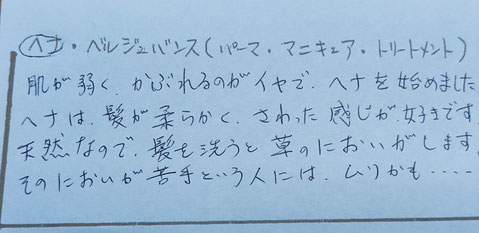 ヘナ・ベルジュバンス(パーマ・マニキュア・トリートメント)
肌が弱く、かぶれるのがイヤで、ヘナを始めました
ヘナは、髪が柔らかく、さわった感じが好きです
天然なので、髪を洗うと草のにおいがします
そのにおいが苦手という人には、ムリかも‥‥‥